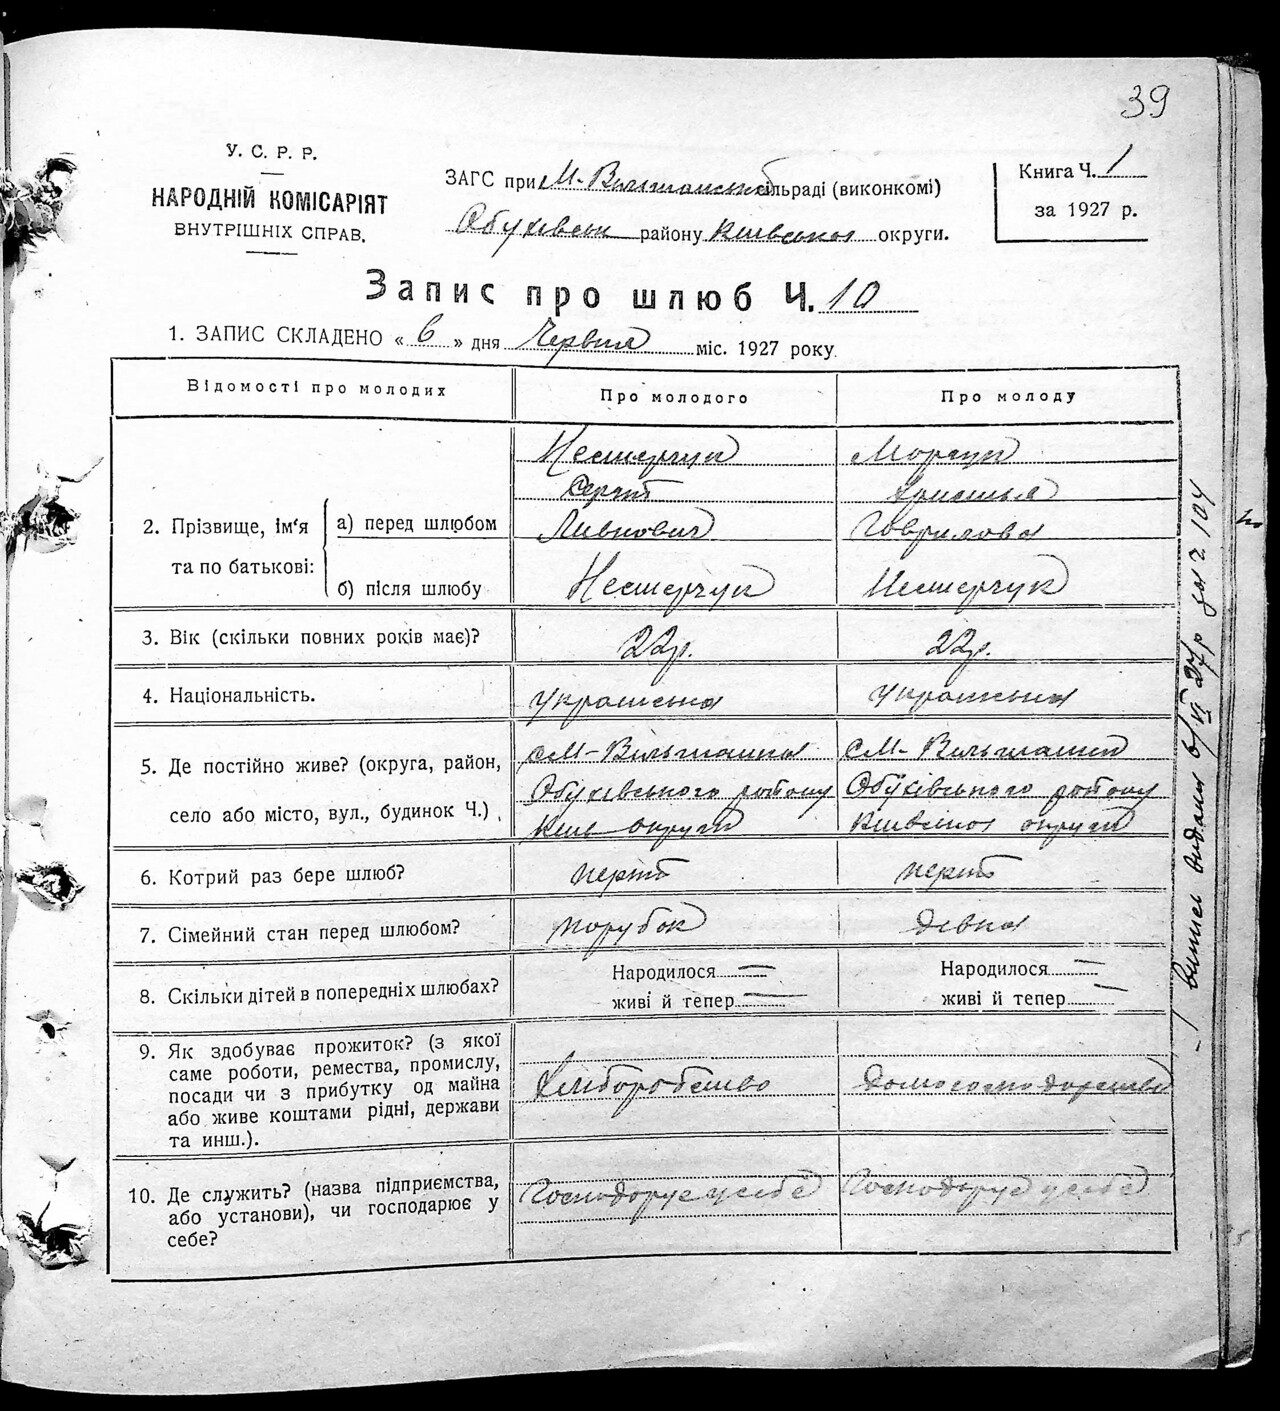 39
У. С. Р. Р.
НАРОДНІЙ КОМІСАРІЯТ
ВНУТРІШНІХ СПРАВ.
ЗАГС при М-Вільшанській сільраді (виконкомі)
Обухівськ району Київської округи.
Книга Ч. 1
за 1927 р.
Запис про шлюб Ч. 10
1. ЗАПИС СКЛАДЕНО « 6 » дня Червня міс. 1927 року
Відомості про молодих
Про молодого
Про молоду
2. Прізвище, ім'я
та по батькові:
а) перед шлюбом
б) після шлюбу
Нестерчук
Сергій
Нестерчук
Моргун
Христья
Гаврилова
Нестерчук
3. Вік (скільки повних років має)?
22р.
22р.
4. Національність.
Українська
Українська
5. Де постійно живе? (округа, район,
село або місто, вул., будинок Ч.)
с М-Вільшанка
Обухівського району
Київ округи
с М- Вільшанки
Обухівського району
Київської округи
6. Котрий раз бере шлюб?
перший
перший
7. Сімейний стан перед шлюбом?
парубок
дівка
8. Скільки дітей в попередніх шлюбах?
Народилося —
живі й тепер —
Народилося —
живі й тепер —
9. Як здобуває прожиток? (з якої
саме роботи, ремества, промислу,
посади чи з прибутку од майна
або живе коштами рідні, держави
та инш.).
Хліборобство
Домогосподарство
10. Де служить? (назва підприємства,
або установи), чи господарює у
себе?
Господарує у себе
Господарує у себе
Випис видана 6/VI 27р за № 104